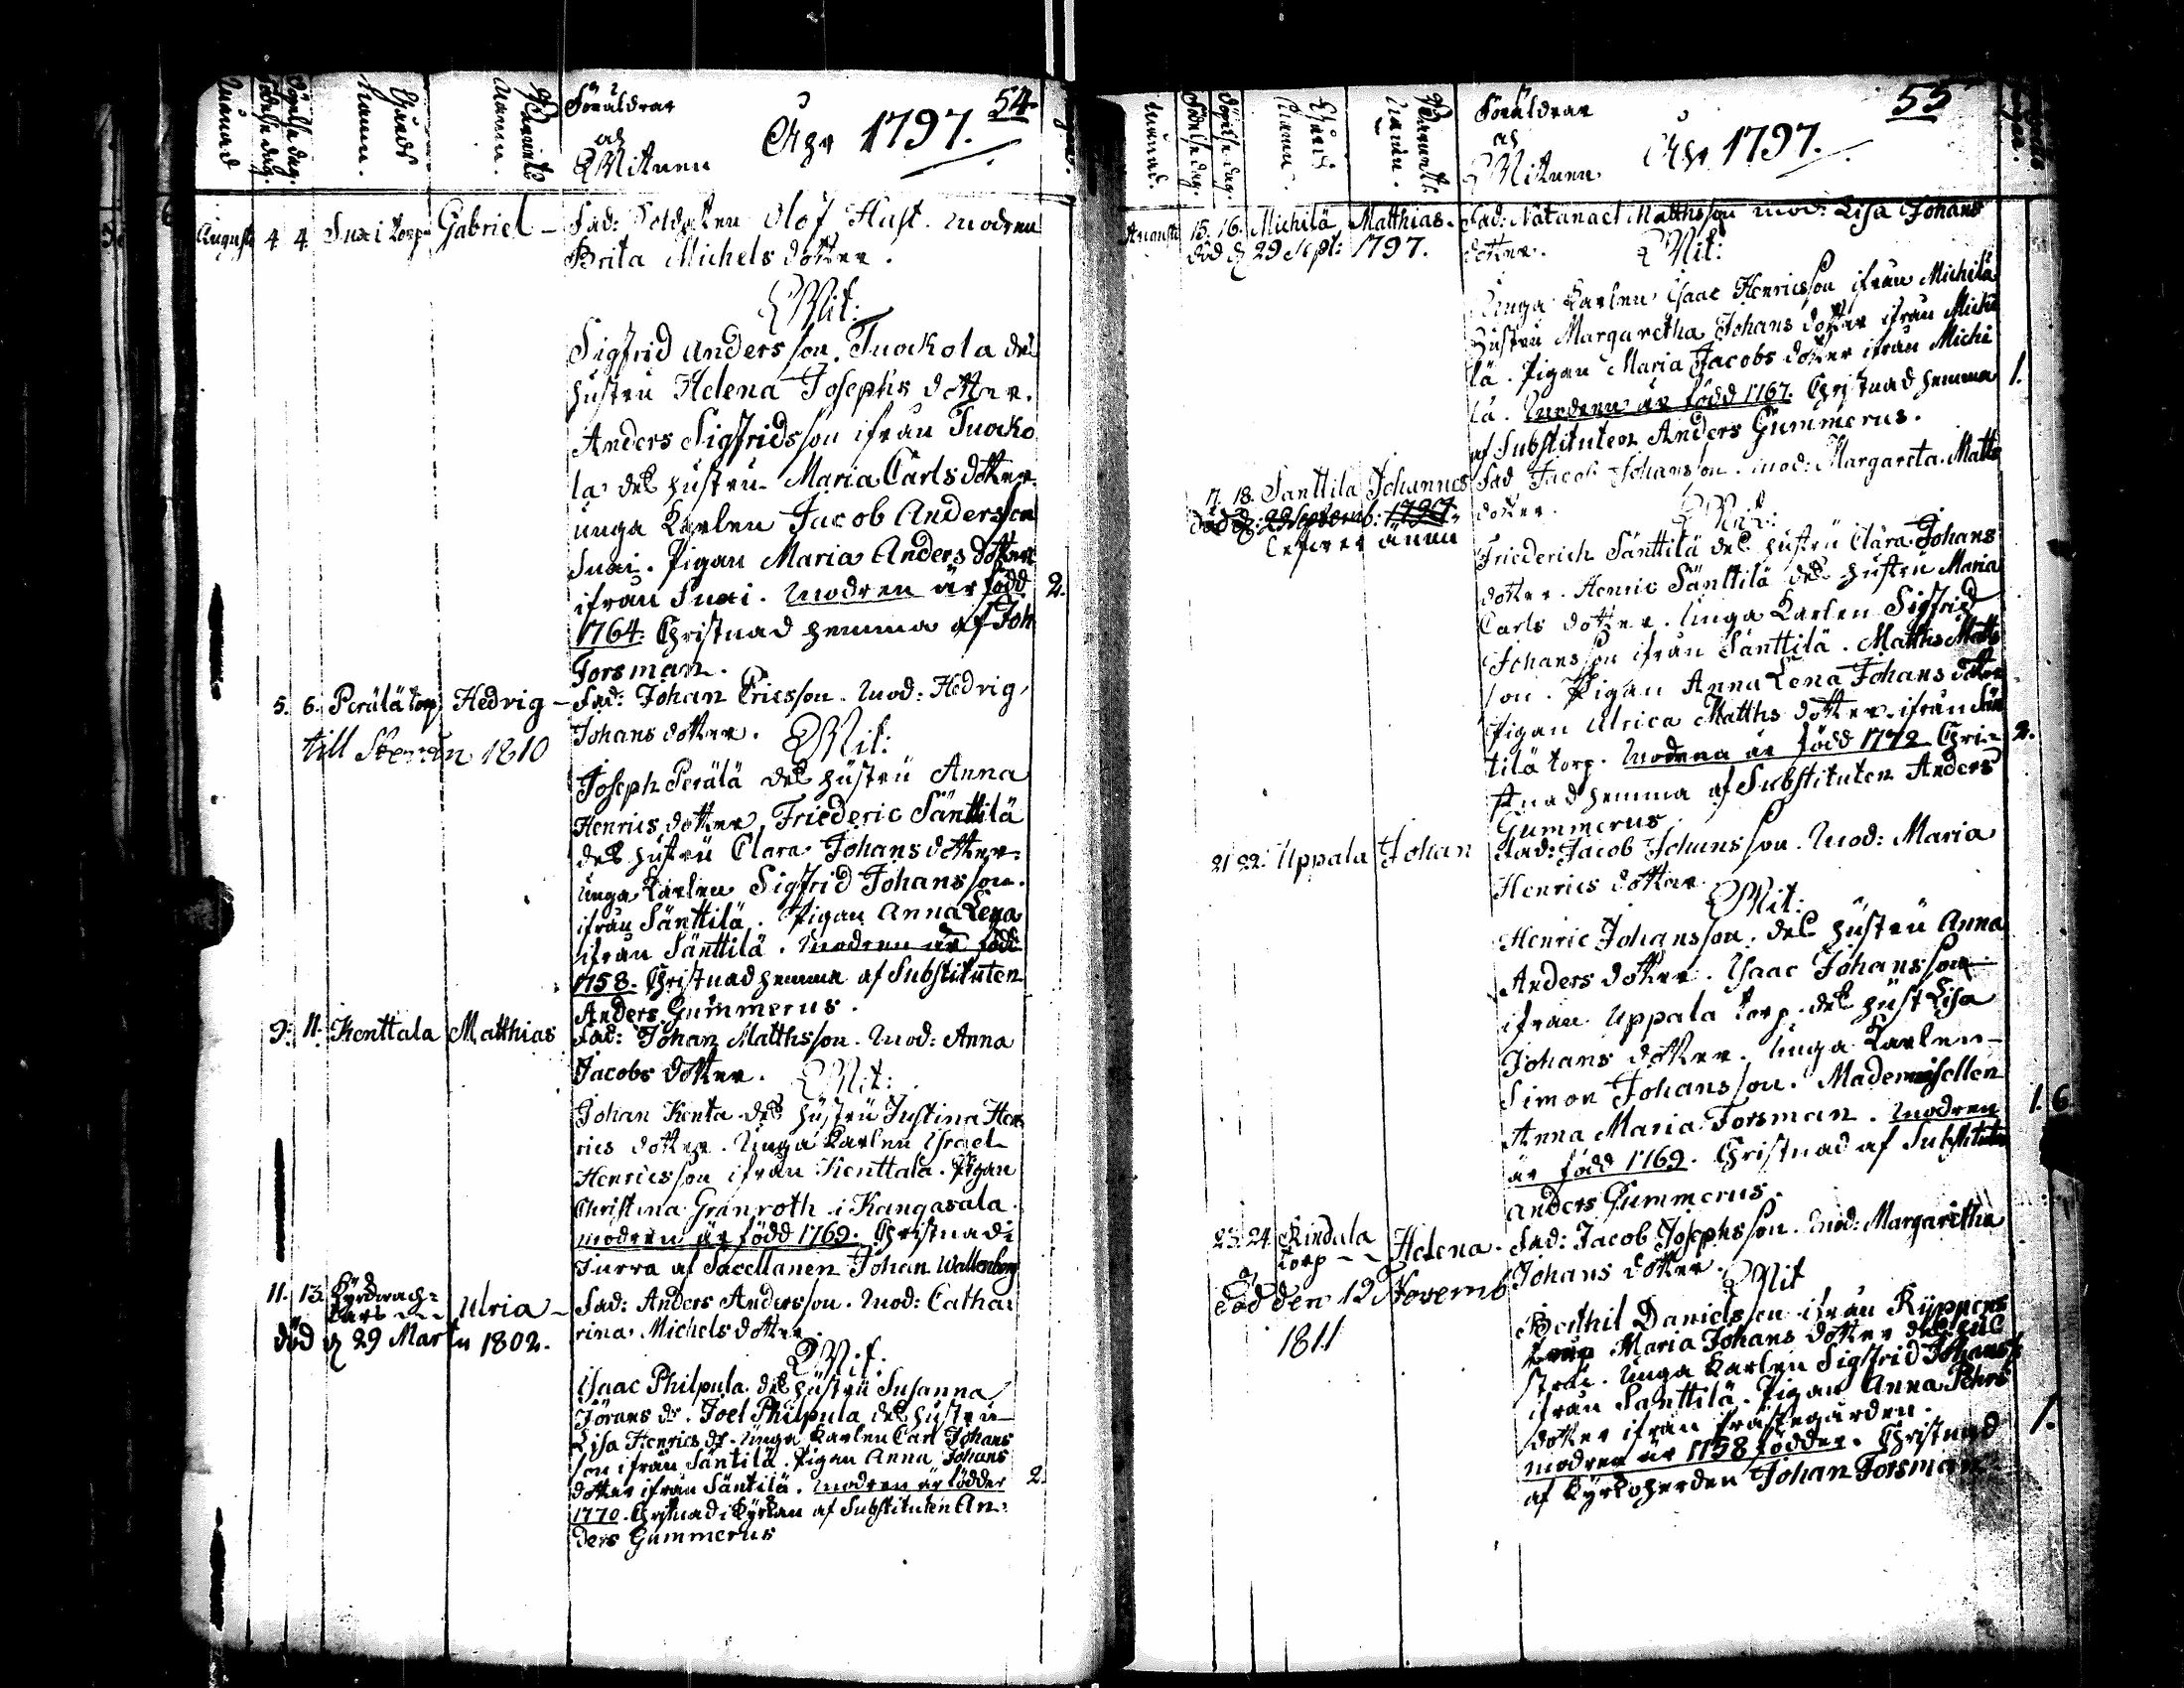 Månad
Födelse dag.
Döpelse dag.
Gårds Namn.
Barnets Namn.
Föräldrar och Witnen
Åhr 1797.
54.
Augusti 4 4. Suxi torp Gabriel – Fad: Soldaten Olof Hast. Modren
Brita Michels dotter.
Wit:
Sigfrid Andersson Tuokola des
hustru Helena Josephs dotter.
Anders Sigfridsson ifrån Tuoko
la des hustru Maria Carls dotter.
unga Karlen Jacob Andersson
Suxi. Pigan Maria Anders dotter
ifrån Suxi. Modren är född 2.
1764. Christnad hemma af Joh
Forsman.
5. 6. Perälä torp Hedvig – Fad: Johan Ericsson. Mod: Hedvig
Johans dotter.
till 1810
Wit:
Joseph Perälä des hustru Anna
Henrics dotter, Friederic Sänttilä
des hustru Clara Johans dotter.
unga Karlen Sigfrid Johansson
ifrån Sänttilä. Pigan Anna Lena
ifrån Sänttilä. Modren är född
1758. Christnad hemma af Substituten
Anders Gummerus.
9. 11. Kenttala Matthias Fad: Johan Matthsson. Mod: Anna
Jacobs dotter.
Wit:
Johan Kenta des hustru Justina Hen
rics dotter. Unga Karlen Israel
Henricsson ifrån Kenttala. Pigan
Christina Grönroth i Kangasala.
modren är född 1769. Christnad i
af Sacellanen Johan Wallenberg
11. 13. Ulrica – Fad: Anders Andersson. Mod: Catha
rina Michels dotter
död d 29 Martii 1802.
Wit:
Isaac Philpula des hustru Susanna
Jörans dr. Joel Philpula des hustru
Lisa Henrics dr. Unga Karlen Carl Johans
son ifrån Säntilä. Pigan Anna Johans
dotter ifrån Säntilä. Modren är födder 2.
1770. Christnad i Kyrkan af Substituten An:
ders Gummerus
Månad.
Födelse dag.
Döpelse dag.
Gårds Namn.
Barnets Namn.
Föräldrar och Witnen
Åhr 1797.
55
Augusti 15. 16. Michilä Matthias. Fad: Natanael Matthsson mod: Lisa Johans
dotter.
död d 29 Sept: 1797.
Wit:
Unga Karlen Isaac Henricsson ifrån Michilä
Hustru Margaretha Johans dotter ifrån Michi
lä. Pigan Maria Jacobs dotter ifrån Michi
lä. Modren är född 1767. Christnad hemma 1.
af Substituten Anders Gummerus.
17. 18. Santtila Johannes Fad Jacob Johansson. mod: Margareta Matts
dotter.
död d: 29 Septemb: 1797.
Lefver ännu
Wit:
Friederich Sänttilä des hustru Clara Johans
dotter. Henric Sänttilä des hustru Maria
Carls dotter. Unga Karlen Sigfrid
Johansson ifrån Sänttilä. Matths Matts
son. Pigan Anna Lena Johans dotter
Pigan Ulrica Matths dotter ifrån Sän
tilä torp. Modren är född 1772 Chri 2.
stnad hemma af Substituten Anders
Gummerus
21 22. Uppala Johan Fad: Jacob Johansson. Mod: Maria
Henrics dotter
Wit:
Henric Johansson des hustru Anna
Anders dotter. Isaac Johansson
ifrån Uppala torp des hust Lisa
Johans dotter. Unga Karlen
Simon Johansson. Mademosellen
Anna Maria Forsman. Modren 1. 6
är född 1769. Christnad af Substituten
Anders Gummerus.
23. 24. Rindala torp – – Helena. Fad: Jacob Josephsson. Mod: Margaretha
Johans dotter
död den 12 Novemb
1811
Wit
Berthil Danielsson ifrån
Maria Johans dotter des hu
stru. Unga Karlen Sigfrid Johanss
ifrån Santtilä. Pigan Anna Pehrs
dotter ifrån Prästegården.
modren är 1758 födder. Christnad 1.
af Kyrkoherden Johan Forsman